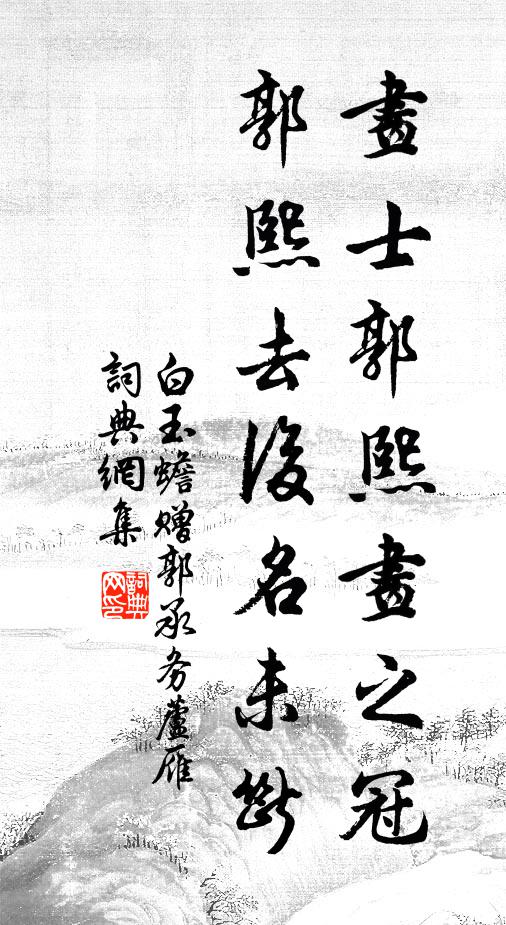 畫士郭熙畫之冠
郭熙去後名未斷
白玉蟾贈郭承务蘆雁
詞典網集
詞典网印